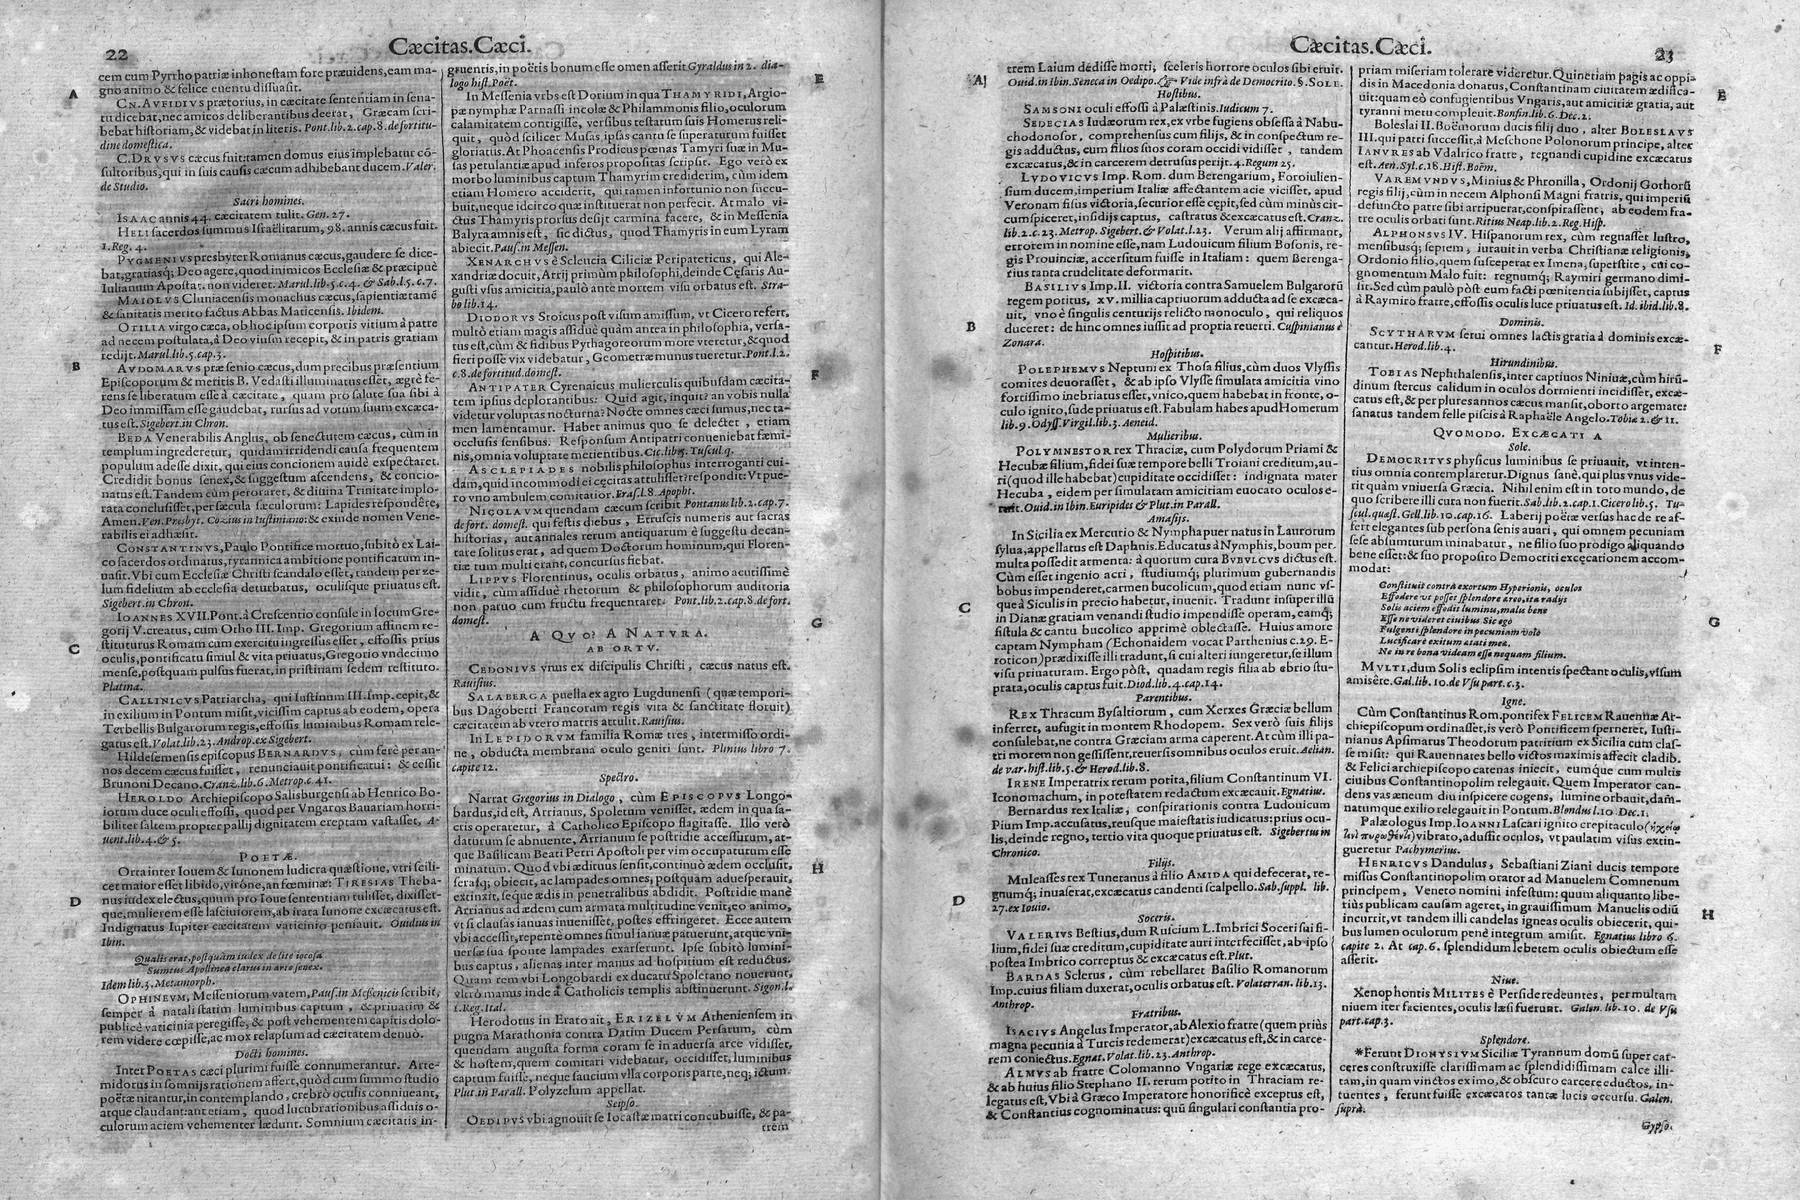 22
Cæcitas. Cæci.
cem cum Pyrrho patriæ inhonestam fore præuidens, eam ma-
gno animo & felice euentu dissuasit.
CN. AVFIDIVS prætorius, in cæcitate sententiam in sena-
tu dicebat, nec amicos deliberantibus deerat, Græcam scri-
bebat historiam, & videbat in literis. Pont. lib. 2. cap. 8. de fortitu-
dine domestica.
C. DRVSVS cæcus fuit: tamen domus eius implebatur cō-
sultoribus, qui in suis causis cæcum adhibebant ducem. Valer.
de Studio.
Sacri homines.
ISAAC annis 44. cæcitatem tulit. Gen. 27.
HELI sacerdos summus Israëlitarum, 98. annis cæcus fuit.
1. Reg. 4.
PYGMENIVS presbyter Romanus cæcus, gaudere se dice-
bat, gratiasq; Deo agere, quod inimicos Ecclesiæ & præcipuè
Iulianum Apostat. non videret. Marul. lib. 5. c. 4. & Sab. l. 5. c. 7.
MAIOLVS Cluniacensis monachus cæcus, sapientiæ tamē
& sanitatis merito factus Abbas Maticensis. Ibidem.
OTILIA virgo cæca, ob hoc ipsum corporis vitium à patre
ad necem postulata, à Deo visum recepit, & in patris gratiam
redijt. Marul. lib. 5. cap. 3.
AVDOMARVS præ senio cæcus, dum precibus præsentium
Episcoporum & meritis B. Vedasti illuminatus esset, ægrè fe-
rens se liberatum esse à cæcitate, quam pro salute sua sibi à
Deo immissam esse gaudebat, rursus ad votum suum excæca-
tus est. Sigebert. in Chron.
BEDA Venerabilis Anglus, ob senectutem cæcus, cùm in
templum ingrederetur, quidam irridendi causa frequentem
populum adesse dixit, qui eius concionem auidè exspectaret.
Credidit bonus senex, & suggestum ascendens, & concio-
natus est. Tandem cùm peroraret, & diuina Trinitate implo-
rata conclusisset, per sæcula sæculorum: Lapides respondêre,
Amen. Ven. Presbyt. Cozius in Iustiniano: & exinde nomen Vene-
rabilis ei adhæsit.
CONSTANTINVS, Paulo Pontifice mortuo, subitò ex Lai-
co sacerdos ordinatus, tyrannica ambitione pontificatum in-
uasit. Vbi cum Ecclesiæ Christi scandalo esset, tandem per ze-
lum fidelium ab ecclesia deturbatus, oculisque priuatus est.
Sigebert. in Chron.
IOANNES XVII. Pont. à Crescentio consule in locum Gre-
gorij V. creatus, cum Otho III. Imp. Gregorium affinem re-
stituturus Romam cum exercitu ingressus esset, effossis prius
oculis, pontificatu simul & vita priuatus, Gregorio vndecimo
mense, postquam pulsus fuerat, in pristinam sedem restituto.
Platina.
CALLINICVS Patriarcha, qui Iustinum III. Imp. cepit, &
in exilium in Pontum misit, vicissim captus ab eodem, opera
Terbellis Bulgarorum regis, effossis luminibus Romam rele-
gatus est. Volat. lib. 23. Androp. ex Sigebert.
Hildesemensis episcopus BERNARDVS, cùm ferè per an-
nos decem cæcus fuisset, renunciauit pontificatui: & cessit
Brunoni Decano. Cranz. lib. 6. Metrop. c. 41.
HEROLDO Archiepiscopo Salisburgensi ab Henrico Bo-
iorum duce oculi effossi, quod per Vngaros Bauariam horri-
biliter saltem propter pallij dignitatem ereptam vastasset, A-
uent. lib. 4. & 5.
POETÆ.
Orta inter Iouem & Iunonem ludicra quæstione, vtri scili-
cet maior esset libido, viróne, an fœminæ: TIRESIAS Theba-
nus iudex electus, quum pro Ioue sententiam tulisset, dixisset-
que, mulierem esse lasciuiorem, ab irata Iunone excæcatus est.
Indignatus Iupiter cæcitatem vaticinio pensauit. Ouidius in
Ibin.
Qualis erat, postquàm iudex de lite iocosa
Sumtus Apollinea clarus in arte senex.
Idem lib. 3. Metamorph.
OPHINEVM, Messeniorum vatem, Paus. in Messenicis scribit,
semper à natali statim luminibus captum, & priuatim &
publicè vaticinia peregisse, & post vehementem capitis dolo-
rem videre cœpisse, ac mox relapsum ad cæcitatem denuò.
Docti homines.
Inter POETAS cæci plurimi fuisse connumerantur. Arte-
midotus in somnijs rationem affert, quòd cum summo studio
poëtæ nitantur, in contemplando, crebrò oculis conniueant,
atque claudant: aut etiam, quod lucubrationibus assiduis o-
culorum aciem vehementer lædunt. Somnium cæcitatis in-
A
B
C
D
gruentis, in poëtis bonum esse omen asserit. Gyraldus in 2. dia-
logo hist. Poët.
In Messenia vrbs est Dorium in qua THAMYRIDI, Argio-
pæ nymphæ Parnassi incolæ & Philammonis filio, oculorum
calamitatem contigisse, versibus testatum suis Homerus reli-
quit, quòd scilicet Musas, ipsas cantu se superaturum fuisset
gloriatus. At Phoacensis Prodicus pœnas Tamyri suæ in Mu-
sas petulantiæ apud inferos propositas scripsit. Ego verò ex
morbo luminibus captum Thamyrim crediderim, cùm idem
etiam Homero acciderit, qui tamen infortunio non succu-
buit, neque idcirco quæ instituerat non perfecit. At malo vi-
ctus Thamyris prorsus desijt carmina facere, & in Messenia
Balyra amnis est, sic dictus, quod Thamyris in eum Lyram
abiecit. Paus. in Messen.
XENARCHVS è Seleucia Ciliciæ Peripateticus, qui Ale-
xandriæ docuit, Atrij primùm philosophi, deinde Cęsaris Au-
gusti vsus amicitia, paulò ante mortem visu orbatus est. Stra-
bo lib. 14.
DIODORVS Stoicus post visum amissum, vt Cicero refert,
multò etiam magis assiduè quàm antea in philosophia, versa-
tus est, cùm & fidibus Pythagoreorum more vteretur, & quod
fieri posse vix videbatur, Geometræ munus tueretur. Pont. l. 2.
c. 8. de fortitud. domest.
ANTIPATER Cyrenaicus mulierculis quibusdam cæcita-
tem ipsius deplorantibus: Quid agit, inquit? an vobis nulla
videtur voluptas nocturna? Nocte omnes cæci sumus, nec ta-
men lamentamur. Habet animus quo se delectet, etiam
occlusis sensibus. Responsum Antipatri conueniebat fæmi-
nis, omnia voluptate metientibus. Cic. lib. 5. Tuscul. q.
ASCLEPIADES nobilis philosophus interroganti cui-
dam, quid incommodi ei cęcitas attulisset: respondit: Vt pue-
ro vno ambulem comitatior. Eras. l. 8. Apopht.
NICOLAVM quendam cæcum scribit Pontanus lib. 2. cap. 7.
de fort. domest. qui festis diebus, Etruscis numeris aut sacras
historias, aut annales rerum antiquarum è suggestu decan-
tare solitus erat, ad quem Doctorum hominum, qui Floren-
tiæ tum multi erant, concursus fiebat.
LIPPVS Florentinus, oculis orbatus, animo acutissimè
vidit, cùm assiduè rhetorum & philosophorum auditoria
non paruo cum fructu frequentaret. Pont. lib. 2. cap. 8. de fort.
domest.
A QVO? A NATVRA.
AB ORTV.
CEDONIVS vnus ex discipulis Christi, cæcus natus est.
Rauisius.
SALABERGA puella ex agro Lugdunensi (quæ tempori-
bus Dagoberti Francorum regis vita & sanctitate floruit)
cæcitatem ab vtero matris attulit. Rauisius.
In LEPIDORVM familia Romæ tres, intermisso ordi-
ne, obducta membrana oculo geniti sunt. Plinius libro 7.
capite 12.
Spectro.
Narrat Gregorius in Dialogo, cùm EPISCOPVS Longo-
bardus, id est, Arrianus, Spoletum venisset, ædem in qua sa-
cris operaretur, à Catholico Episcopo flagitasse. Illo verò
daturum se abnuente, Arrianum se postridie accessurum, at-
que Basilicam Beati Petri Apostoli per vim occupaturum esse
minatum. Quod vbi ædituus sensit, continuò ædem occlusit,
serasq; obiecit, ac lampades omnes, postquam aduesperauit,
extinxit, seque ædis in penetralibus abdidit. Postridie manè
Arrianus ad ædem cum armata multitudine venit, eo animo,
vt si clausas ianuas inuenisset, postes effringeret. Ecce autem
vbi accessit, repentè omnes simul ianuæ patuerunt, atque vni-
uersæ sua sponte lampades exarserunt. Ipse subitò lumini-
bus captus, alienas inter manus ad hospitium est reductus.
Quam rem vbi Longobardi ex ducatu Spoletano nouerunt,
vlerò manus inde à Catholicis templis abstinuerunt. Sigon. l.
1. Reg. Ital.
Herodotus in Erato ait, ERIZELVM Atheniensem in
pugna Marathonia contra Datim Ducem Persarum, cùm
quendam augusta forma coram se in aduersa arce vidisset,
& hostem, quem comitari videbatur, occidisset, luminibus
captum fuisse, neque saucium vlla corporis parte, neq; ictum.
Plut. in Parall. Polyzelum appellat.
Seipso.
OEDIPVS vbi agnouit se Iocastæ matri concubuisse, & pa-
trem
E
F
G
H
Cæcitas. Cæci.
23
trem Laium dedisse morti, sceleris horrore oculos sibi eruit.
Ouid. in Ibin. Seneca in Oedipo. & Vide infrà de Democrito. §. SOLE.
Hostibus.
SAMSONI oculi effossi à Palæstinis. Iudicum 7.
SEDECIAS Iudæorum rex, ex vrbe fugiens obsessa à Nabu-
chodonosor, comprehensus cum filijs, & in conspectum re-
gis adductus, cum filios suos coram occidi vidisset, tandem
excæcatus, & in carcerem detrusus perijt. 4. Regum 25.
LVDOVICVS Imp. Rom. dum Berengarium, Foroiulien-
sium ducem, imperium Italiæ affectantem acie vicisset, apud
Veronam fisus victoria, securior esse cępit, sed cùm minùs cir-
cumspiceret, insidijs captus, castratus & excæcatus est. Cranz.
lib. 2. c. 23. Metrop. Sigebert. & Volat. l. 23. Verum alij affirmant,
errorem in nomine esse, nam Ludouicum filium Bosonis, re-
gis Prouinciæ, accersitum fuisse in Italiam: quem Berenga-
rius tanta crudelitate deformarit.
BASILIVS Imp. II. victoria contra Samuelem Bulgarorū
regem potitus, xv. millia captiuorum adducta ad se excæca-
uit, vno è singulis centurijs relicto monoculo, qui reliquos
duceret: de hinc omnes iussit ad propria reuerti. Cuspinianus è
Zonara.
Hospitibus.
POLEPHEMVS Neptuni ex Thosa filius, cùm duos Vlyssis
comites deuorasset, & ab ipso Vlysse simulata amicitia vino
fortissimo inebriatus esset, vnico, quem habebat in fronte, o-
culo ignito, sude priuatus est. Fabulam habes apud Homerum
lib. 9. Odyss. Virgil. lib. 3. Aeneid.
Mulieribus.
POLYMNESTOR rex Thraciæ, cum Polydorum Priami &
Hecubæ filium, fidei suæ tempore belli Troiani creditum, au-
ri (quod ille habebat) cupiditate occidisset: indignata mater
Hecuba, eidem per simulatam amicitiam euocato oculos e-
ruit. Ouid. in Ibin. Euripides & Plut. in Parall.
Amasijs.
In Sicilia ex Mercurio & Nympha puer natus in Laurorum
sylua, appellatus est Daphnis. Educatus à Nymphis, boum per-
multa possedit armenta: à quorum cura BVBVLCVS dictus est.
Cùm esset ingenio acri, studiumq; plurimum gubernandis
bobus impenderet, carmen bucolicum, quod etiam nunc vs-
que à Siculis in precio habetur, inuenit. Tradunt insuper illū
in Dianæ gratiam venandi studio impendisse operam, eamq;
fistula & cantu bucolico apprimè oblectasse. Huius amore
captam Nympham (Echonaidem vocat Parthenius c. 29. E-
roticon) prædixisse illi tradunt, si cui alteri iungeretur, se illum
visu priuaturam. Ergo pòst, quadam regis filia ab ebrio stu-
prata, oculis captus fuit. Diod. lib. 4. cap. 14.
Parentibus.
REX Thracum Bysaltiorum, cum Xerxes Græciæ bellum
inferret, aufugit in montem Rhodopem. Sex verò suis filijs
consulebat, ne contra Græciam arma caperent. At cùm illi pa-
tri morem non gessissent, reuersis omnibus oculos eruit. Aelian.
de var. hist. lib. 5. & Herod. lib. 8.
IRENE Imperatrix rerum potita, filium Constantinum VI.
Iconomachum, in potestatem redactum excæcauit. Egnatius.
Bernardus rex Italiæ, conspirationis contra Ludouicum
Pium Imp. accusatus, reusque maiestatis iudicatus: prius ocu-
lis, deinde regno, tertio vita quoque priuatus est. Sigebertus in
Chronico.
Filijs.
Muleasses rex Tunetanus à filio AMIDA qui defecerat, re-
gnumq; inuaserat, excæcatus candenti scalpello. Sab. suppl. lib.
27. ex Iouio.
Soceris.
VALERIVS Bestius, dum Ruscium L. Imbrici Soceri sui fi-
lium, fidei suæ creditum, cupiditate auri interfecisset, ab ipso
postea Imbrico correptus & excæcatus est. Plut.
BARDAS Sclerus, cùm rebellaret Basilio Romanorum
Imp. cuius filiam duxerat, oculis orbatus est. Volaterran. lib. 13.
Anthrop.
Fratribus.
ISACIVS Angelus Imperator, ab Alexio fratre (quem priùs
magna pecunia à Turcis redemerat) excæcatus est, & in carce-
rem coniectus. Egnat. Volat. lib. 23. Anthrop.
ALMVS ab fratre Colomanno Vngariæ rege excæcatus,
& ab huius filio Stephano II. rerum potito in Thraciam re-
legatus est. Vbi à Græco Imperatore honorificè exceptus est,
& Constantius cognominatus: quū singulari constantia pro-
A
B
C
D
priam miseriam tolerare videretur. Quinetiam pagis ac oppi-
dis in Macedonia donatus, Constantinam ciuitatem ædifica-
uit: quam eò confugientibus Vngaris, aut amicitiæ gratia, aut
tyranni metu compleuit. Bonfin. lib. 6. Dec. 2.
Boleslai II. Boëmorum ducis filij duo, alter BOLESLAVS
III. qui patri successit, à Meschone Polonorum principe, alter
IANVRES ab Vdalrico fratre, regnandi cupidine excæcatus
est. Aen. Syl. c. 18. Hist. Boëm.
VAREMVNDVS, Minius & Phronilla, Ordonij Gothorū
regis filij, cùm in necem Alphonsi Magni fratris, qui imperiū
defuncto patre sibi arripuerat, conspirassent, ab eodem fra-
tre oculis orbati sunt. Ritius Neap. lib. 2. Reg. Hisp.
ALPHONSVS IV. Hispanorum rex, cùm regnasset lustro,
mensibusq; septem, iurauit in verba Christianæ religionis,
Ordonio filio, quem susceperat ex Imena, superstite, cui co-
gnomentum Malo fuit: regnumq; Raymiri germano dimi-
sit. Sed cùm paulò pòst eum facti pœnitentia subijsset, captus
à Raymiro fratre, effossis oculis luce priuatus est. Id. ibid. lib. 8.
Dominis.
SCYTHARVM serui omnes lactis gratia à dominis excæ-
cantur. Herod. lib. 4.
Hirundinibus.
TOBIAS Nephthalensis, inter captiuos Niniuæ, cùm hirū-
dinum stercus calidum in oculos dormienti incidisset, excæ-
catus est, & per plures annos cæcus mansit, oborto argemate:
sanatus tandem felle piscis à Raphaële Angelo. Tobiæ 2. & 11.
QVOMODO. EXCÆCATI A
Sole.
DEMOCRITVS physicus luminibus se priuauit, vt inten-
tius omnia contemplaretur. Dignus sanè, qui plus vnus vide-
rit quàm vniuersa Græcia. Nihil enim est in toto mundo, de
quo scribere illi cura non fuerit. Sab. lib. 2. cap. 1. Cicero lib. 5. Tu-
scul. quæst. Gell. lib. 10. cap. 16. Laberij poëtæ versus hac de re af-
fert elegantes sub persona senis auari, qui omnem pecuniam
sese absumturum minabatur, ne filio suo prodigo aliquando
bene esset: & suo proposito Democriti excęcationem accom-
modat:
Constituit contra exortum Hyperionis, oculos
Effodere vt posset splendore æreo, ita radijs
Solis aciem effodit luminis, malis bene
Esse ne videret ciuibus Sic ego
Fulgenti splendore in pecuniam volo
Lucificare exitum ætati meæ.
Ne in re bona videam esse nequam filium.
MVLTI, dum Solis eclipsim intentis spectant oculis, vsum
amisêre. Gal. lib. 10. de Vsu part. c. 3.
Igne.
Cùm Constantinus Rom. pontifex FELICEM Rauennæ Ar-
chiepiscopum ordinasset, is verò Pontificem sperneret, Iusti-
nianus Apsimatus Theodorum patritium ex Sicilia cum clas-
se misit: qui Rauennates bello victos maximis affecit cladib.
& Felici archiepiscopo catenas iniecit, eumque cum multis
ciuibus Constantinopolim relegauit. Quem Imperator can-
dens vas æneum diu inspicere cogens, lumine orbauit, dam-
natumque exilio relegauit in Pontum. Blondus l. 10. Dec. 1.
Palæologus Imp. IOANNI Lascari ignito crepitaculo
vibrato, adussit oculos, vt paulatim visus extin-
gueretur Pachymerius.
HENRICVS Dandulus, Sebastiani Ziani ducis tempore
missus Constantinopolim orator ad Manuelem Comnenum
principem, Veneto nomini infestum: quum aliquanto libe-
riùs publicam causam ageret, in grauissimum Manuelis odiū
incurrit, vt tandem illi candelas igneas oculis obiecerit, qui-
bus lumen oculorum penè integrum amisit. Egnatius libro 6.
capite 2. At cap. 6. splendidum lebetem oculis obiectum esse
asserit.
Niue.
Xenophontis MILITES è Perside redeuntes, per multam
niuem iter facientes, oculis læsi fuerunt. Galen. lib. 10. de Vsu
part. cap. 3.
Splendore.
*Ferunt DIONYSIVM Siciliæ Tyrannum domū super car-
ceres construxisse clarissimam ac splendidissimam calce illi-
tam, in quam vinctos ex imo, & obscuro carcere eductos, in-
tuentes, ferunt fuisse excæcatos tantæ lucis occursu. Galen.
suprà.
Gypso.
E
F
G
H